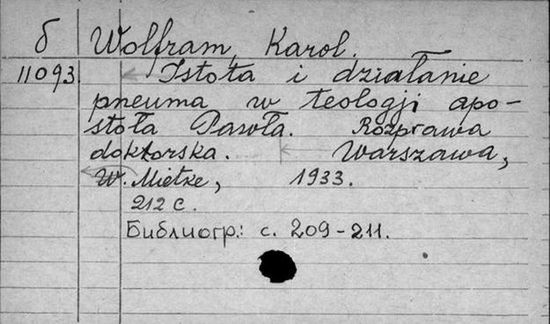 б Wolfram, Karol.
11093. Istota i działanie
pneuma w teologji apo-
stoła Pawła. Rozprawa
doktorska. Warszawa,
W. Mietke, 1933.
212 с.
Библиогр.: с. 209-211.